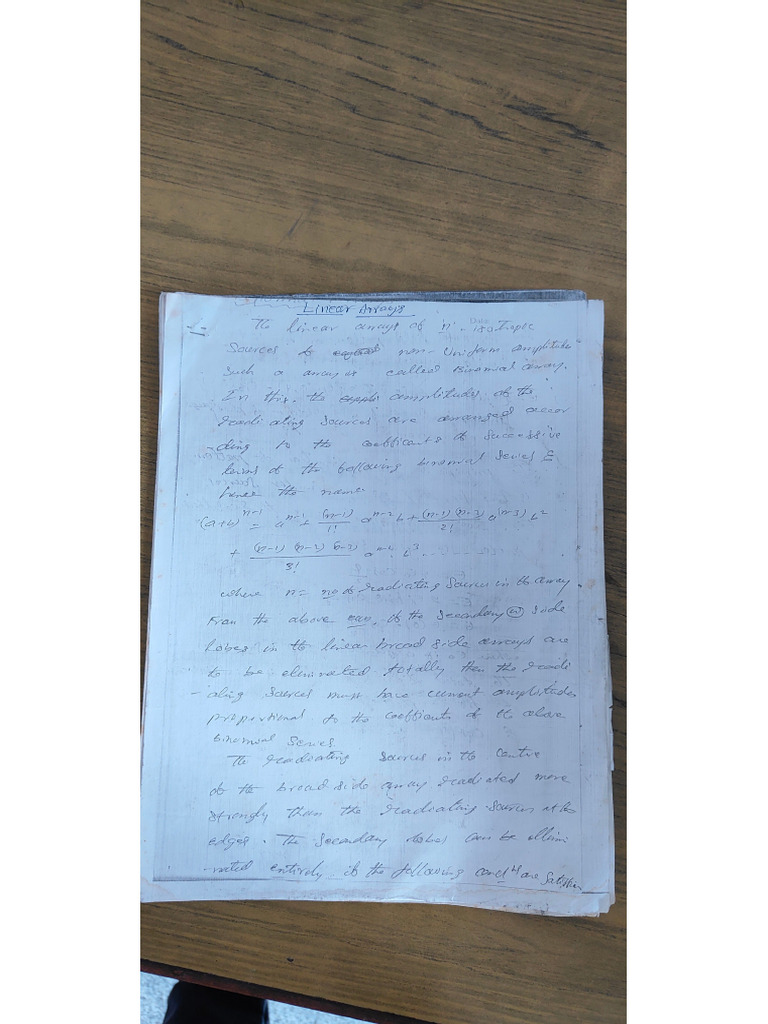 Linear Arrays
The linear arrays of n - isotropic
Sources of non-Uniform amplitudes
Such a array is called Binomial array.
In this, the amplitudes of the
radiating Sources are arranged accor
-ding to the coefficients of successive
terms of the following binomial series &
hence the name.
(a+b)^{n-1} = a^{n-1} + (n-1)/1! a^{n-2} b + (n-1)(n-2)/2! a^{(n-3)} b^2
+ (n-1)(n-2)(n-3)/3! a^{n-4} b^3 ...
where n = no of radiating Sources in the array.
From the above eqn. if the Secondary (or) side
lobes in the linear broad side arrays are
to be eliminated totally then the radi
-ating Sources must have current amplitudes
proportional to the coefficients of the above
binomial Series.
The radiating Sources in the centre
of the broad side array radiated more
strongly than the radiating sources at the
edges. The Secondary lobes can be elimi
-nated entirely if the following cond^n are